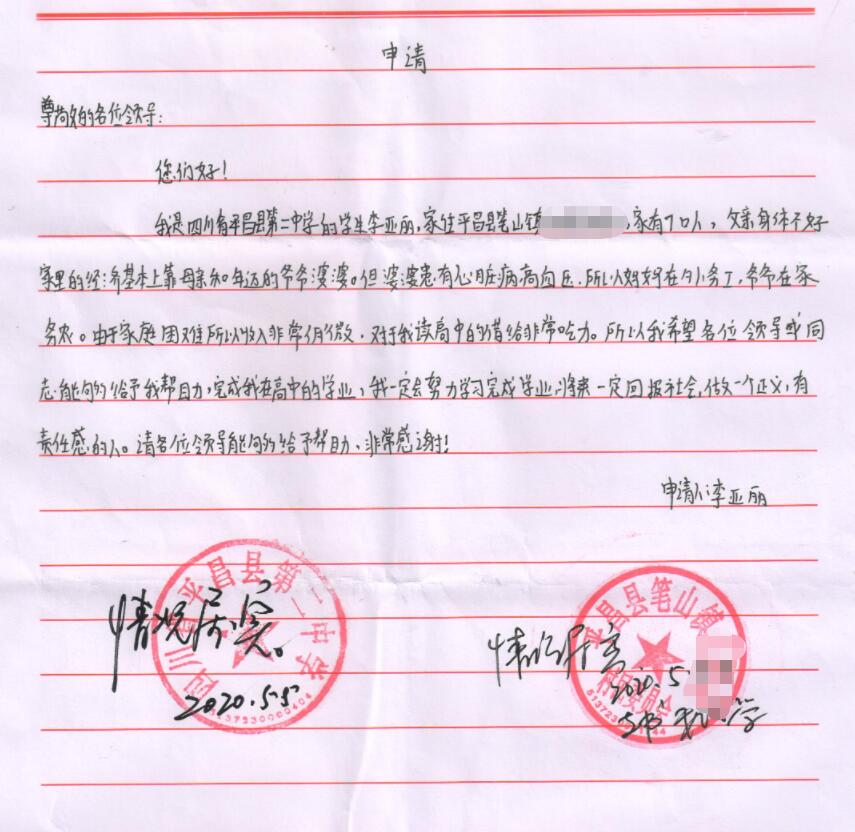 申请
尊敬的各位领导:
您们好!
我是四川省平昌县第二中学的学生李亚丽,家住平昌县笔山镇,家有7口人,父亲身体不好
家里的经济基本上靠母亲和年迈的爷爷婆婆。但婆婆患有心脏病高血压.所以妈妈在外务工,爷爷在家
务农。由于家庭困难所以收入非常微,对于我读高中的给非常吃力。所以我希望各位领导或同
志能够给予我帮助,完成我在高中的学业,我一定会努力学习完成学业,将来一定回报社会,做一个正义,有
责任感的人。请各位领导能够给予帮助、非常感谢!
申请人:李亚丽
四川省平昌县第二中学
情况属实。
2020.5.5
5137230000404
平昌县笔山镇
村民委员会
情况属实
2020.5